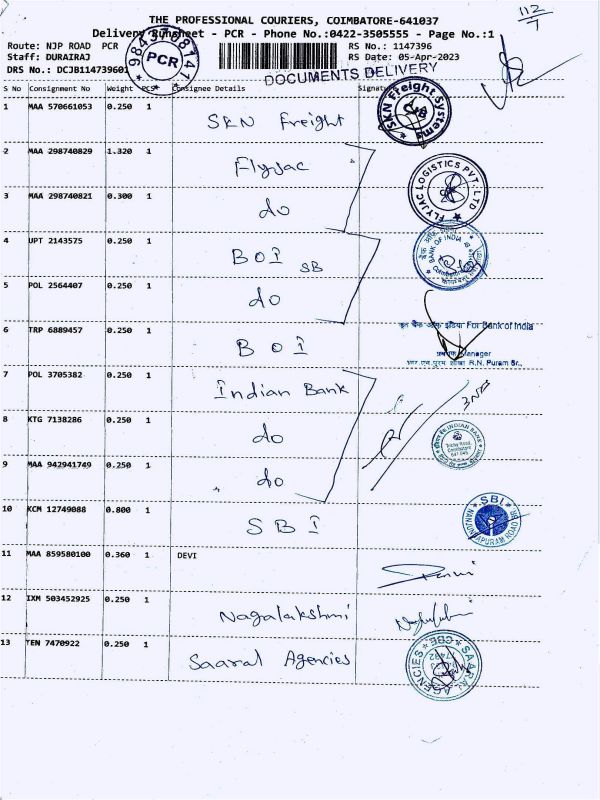 112/7
THE PROFESSIONAL COURIERS, COIMBATORE-641037
Delivery Runsheet - PCR - Phone No.:0422-3505555 - Page No.:1
Route: NJP ROAD PCR
RS No.: 1147396
Staff: DURAIRAJ
RS Date: 05-Apr-2023
DRS No.: DCJB114739601
PCR
DOCUMENTS DELIVERY
S No Consignment No Weight PCS Consignee Details Signature
1 MAA 570661053 0.250 1 SKN Freight
SKN Freight Systems
2 MAA 298740829 1.320 1 Flyjac
3 MAA 298740821 0.300 1 do
FLYJAC LOGISTICS PVT. LTD
4 UPT 2143575 0.250 1 BOI SB
BANK OF INDIA
5 POL 2564407 0.250 1 do
6 TRP 6889457 0.250 1 BOI
For Bank of India
Manager
R.N. Puram Br.,
7 POL 3705382 0.250 1 Indian Bank
8 KTG 7138286 0.250 1 do
INDIAN BANK
9 MAA 942941749 0.250 1 do
10 KCM 12749088 0.800 1 SBI
SBI
NANJUNDAPURAM ROAD BR
11 MAA 859580100 0.360 1 DEVI
12 IXM 503452925 0.250 1 Nagalakshmi
13 TEN 7470922 0.250 1 Saaral Agencies
SAARAL AGENCIES CBE